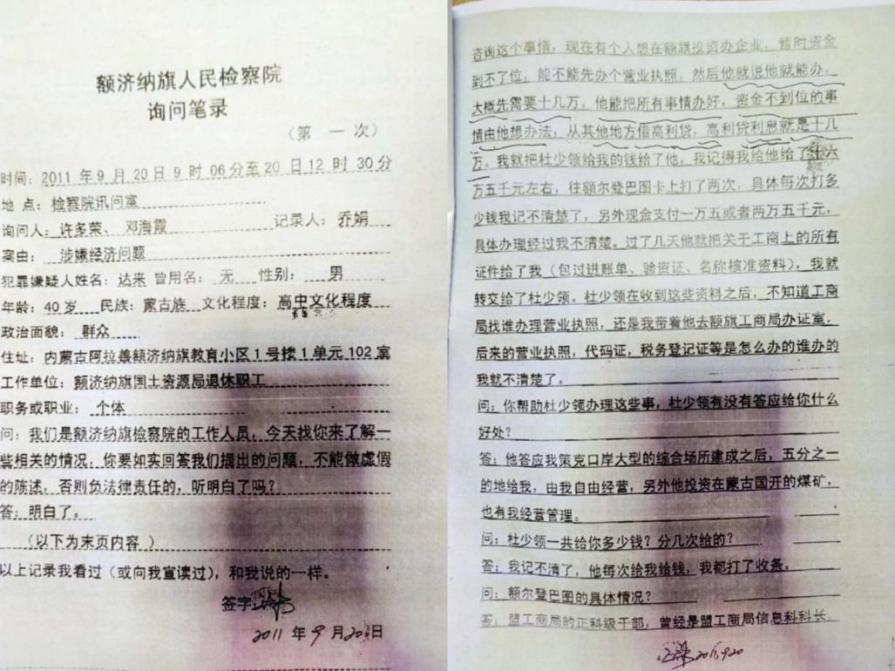 额济纳旗人民检察院
询问笔录
（第 一 次）
时间：2011 年 9 月 20 日 9 时 06 分至 20 日 12 时 30 分
地 点：检察院讯问室
询问人：许多荣、邓海霞 记录人：乔娟
案由： 涉嫌经济问题
犯罪嫌疑人姓名：达来 曾用名： 无 性别： 男
年龄：40 岁 民族：蒙古族 文化程度：高中文化程度
政治面貌： 群众
住址：内蒙古阿拉善额济纳旗教育小区 1 号楼 1 单元 102 室
工作单位：额济纳旗国土资源局退休职工
职务或职业： 个体
问：我们是额济纳旗检察院的工作人员，今天找你来了解一
些相关的情况，你要如实回答我们提出的问题，不能做虚假
的陈述，否则负法律责任的，听明白了吗？
答：明白了。
（以下为末页内容 ）
以上记录我看过（或向我宣读过），和我说的一样。
签字：
2011 年 9 月 20 日
咨询这个事情，现在有个人想在额旗投资办企业，暂时资金
到不了位，能不能先办个营业执照，然后他就说他就能办，
大概先需要十几万，他能把所有事情办好，资金不到位的事
情由他想办法，从其他地方借高利贷，高利贷利息就是十几
万，我就把杜少领给我的钱给了他，我记得我给他给了六
万五千元左右，往额尔登巴图卡上打了两次，具体每次打多
少钱我记不清楚了，另外现金支付一万五或者两万五千元，
具体办理经过我不清楚。过了几天他就把关于工商上的所有
证件给了我（包过进账单、验资证、名称核准资料），我就
转交给了杜少领，杜少领在收到这些资料之后，不知道工商
局找谁办理营业执照，还是我带着他去额旗工商局办证室，
后来的营业执照，代码证，税务登记证等是怎么办的谁办的
我就不清楚了。
问：你帮助杜少领办理这些事，杜少领有没有答应给你什么
好处？
答：他答应我策克口岸大型的综合场所建成之后，五分之一
的地给我，由我自由经营，另外他投资在蒙古国开的煤矿，
也有我经营管理。
问：杜少领一共给你多少钱？分几次给的？
答：我记不清了，他每次给我给钱，我都打了收条。
问：额尔登巴图的具体情况？
答：盟工商局的正科级干部，曾经是盟工商局信息科科长，
2011.9.20